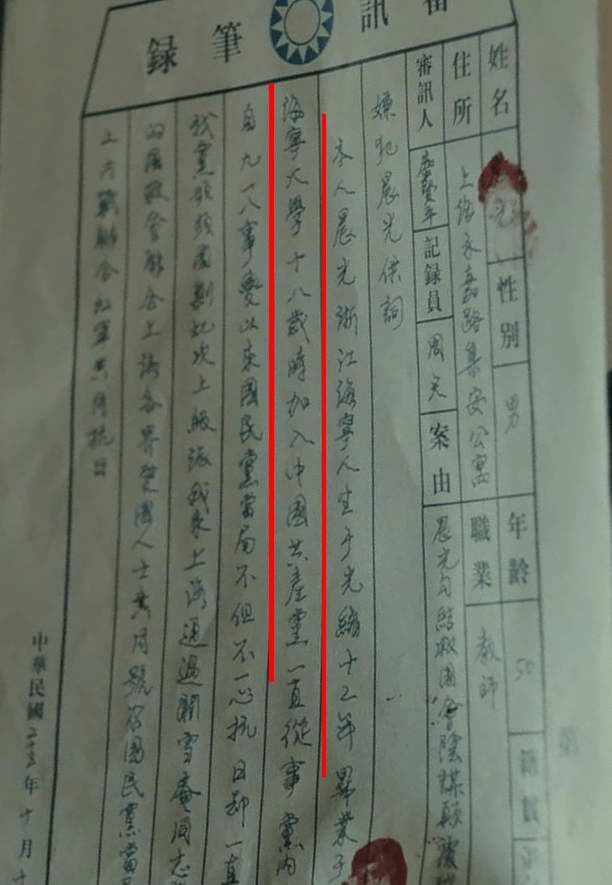 審訊筆録
姓名 光 性別 男 年齡 50 籍
住所 上海永嘉路集安公寓 職業 教師
審訊人 記録員 周 案由 晨光勾結救國會陰謀顛覆
嫌犯晨光供詞
本人晨光浙江海寧人生于光緒十二年畢業于
海寧大學十八歲時加入中國共產黨一直從事黨内
自九一八事變以來國民黨當局不但不一心抗日却一直
我黨 次上級派我來上海通過 雪庵同志
救會聯合上海各界愛國人士共同號 國民黨當
止内戰聯合紅軍共同抗日
中華民國二十五年十月十
第